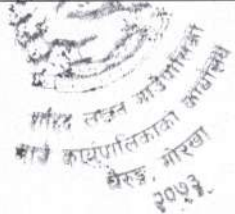 शहिद लखन गाउँपालिका
गाउँ कार्यपालिकाको कार्यालय
घैरुङ, गोरखा
२०७३